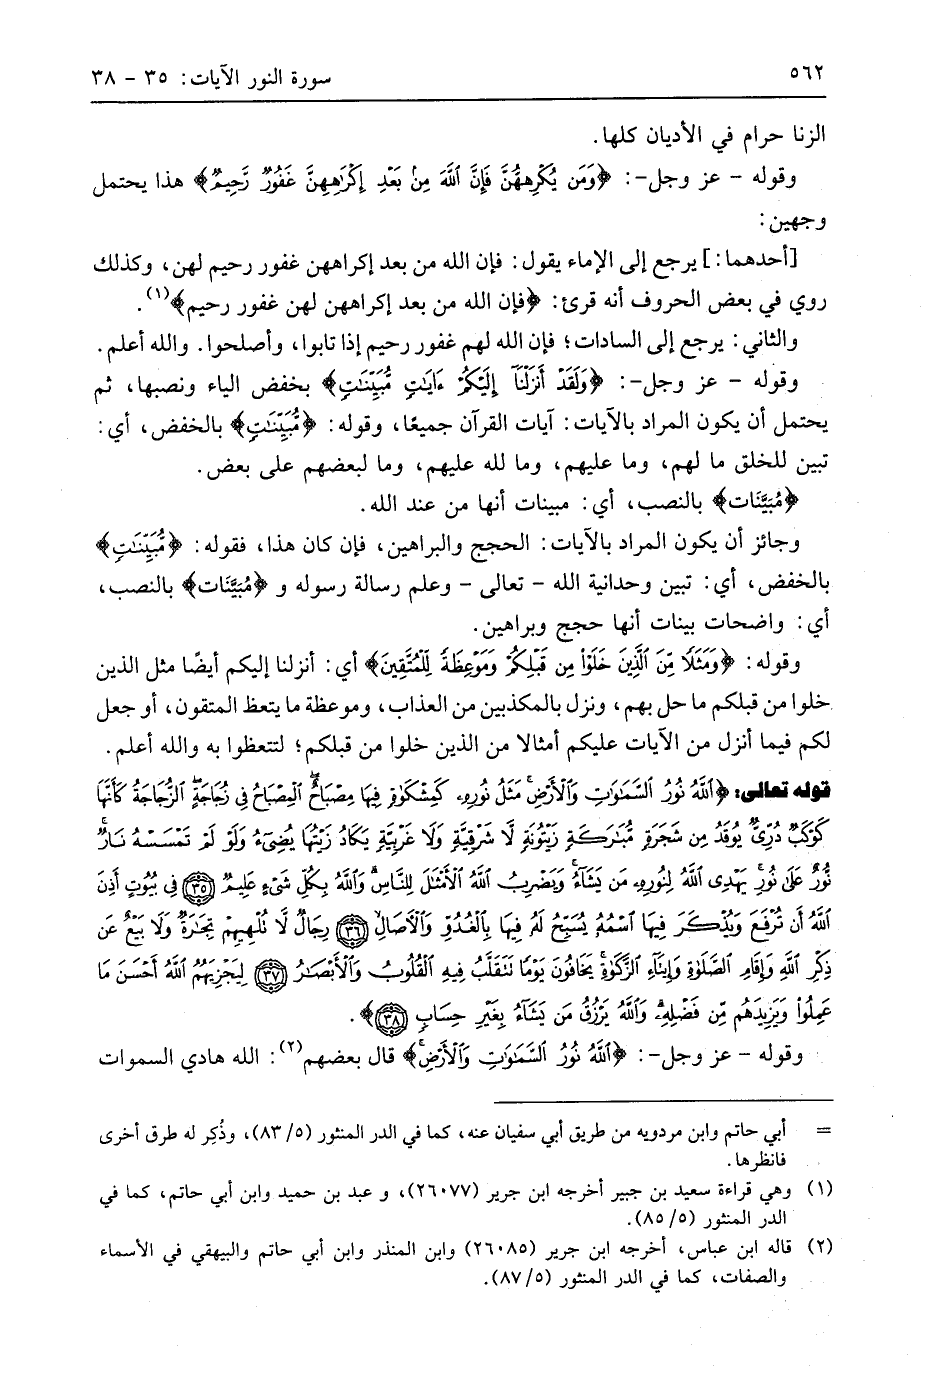 ٥٦٢
سورة النور الآيات: ٣٥ - ٣٨
الزنا حرام في الأديان كلها.
وقوله - عز وجل-: ﴿وَمَن يُكْرِههُّنَّ فَإِنَّ ٱللَّهَ مِنۢ بَعْدِ إِكْرَٰهِهِنَّ غَفُورٌ رَّحِيمٌ﴾ هذا يحتمل
وجهين:
[أحدهما:] يرجع إلى الإماء يقول: فإن الله من بعد إكراههن غفور رحيم لهن، وكذلك
روي في بعض الحروف أنه قرئ: ﴿فإن الله من بعد إكراههن لهن غفور رحيم﴾(١).
والثاني: يرجع إلى السادات؛ فإن الله لهم غفور رحيم إذا تابوا، وأصلحوا. والله أعلم.
وقوله - عز وجل-: ﴿وَلَقَدْ أَنزَلْنَآ إِلَيْكُمْ ءَايَٰتٍ مُّبَيِّنَٰتٍ﴾ بخفض الياء ونصبها، ثم
يحتمل أن يكون المراد بالآيات: آيات القرآن جميعًا، وقوله: ﴿مُّبَيِّنَٰتٍ﴾ بالخفض، أي:
تبين للخلق ما لهم، وما عليهم، وما لله عليهم، وما لبعضهم على بعض.
﴿مُبَيَّنَات﴾ بالنصب، أي: مبينات أنها من عند الله.
وجائز أن يكون المراد بالآيات: الحجج والبراهين، فإن كان هذا، فقوله: ﴿مُّبَيِّنَٰتٍ﴾
بالخفض، أي: تبين وحدانية الله - تعالى - وعلم رسالة رسوله و ﴿مُبَيَّنَات﴾ بالنصب،
أي: واضحات بينات أنها حجج وبراهين.
وقوله: ﴿وَمَثَلًا مِّنَ ٱلَّذِينَ خَلَوْا۟ مِن قَبْلِكُمْ وَمَوْعِظَةً لِّلْمُتَّقِينَ﴾ أي: أنزلنا إليكم أيضًا مثل الذين
خلوا من قبلكم ما حل بهم، ونزل بالمكذبين من العذاب، وموعظة ما يتعظ المتقون، أو جعل
لكم فيما أنزل من الآيات عليكم أمثالا من الذين خلوا من قبلكم؛ لتتعظوا به والله أعلم.
قوله تعالى: ﴿ٱللَّهُ نُورُ ٱلسَّمَٰوَٰتِ وَٱلْأَرْضِ ۚ مَثَلُ نُورِهِۦ كَمِشْكَوٰةٍ فِيهَا مِصْبَاحٌ ۖ ٱلْمِصْبَاحُ فِى زُجَاجَةٍ ۖ ٱلزُّجَاجَةُ كَأَنَّهَا
كَوْكَبٌ دُرِّىٌّ يُوقَدُ مِن شَجَرَةٍ مُّبَٰرَكَةٍ زَيْتُونَةٍ لَّا شَرْقِيَّةٍ وَلَا غَرْبِيَّةٍ يَكَادُ زَيْتُهَا يُضِىٓءُ وَلَوْ لَمْ تَمْسَسْهُ نَارٌ ۚ
نُّورٌ عَلَىٰ نُورٍ ۗ يَهْدِى ٱللَّهُ لِنُورِهِۦ مَن يَشَآءُ ۚ وَيَضْرِبُ ٱللَّهُ ٱلْأَمْثَٰلَ لِلنَّاسِ ۗ وَٱللَّهُ بِكُلِّ شَىْءٍ عَلِيمٌ ﴿٣٥﴾ فِى بُيُوتٍ أَذِنَ
ٱللَّهُ أَن تُرْفَعَ وَيُذْكَرَ فِيهَا ٱسْمُهُۥ يُسَبِّحُ لَهُۥ فِيهَا بِٱلْغُدُوِّ وَٱلْءَاصَالِ ﴿٣٦﴾ رِجَالٌ لَّا تُلْهِيهِمْ تِجَٰرَةٌ وَلَا بَيْعٌ عَن
ذِكْرِ ٱللَّهِ وَإِقَامِ ٱلصَّلَوٰةِ وَإِيتَآءِ ٱلزَّكَوٰةِ ۙ يَخَافُونَ يَوْمًا تَتَقَلَّبُ فِيهِ ٱلْقُلُوبُ وَٱلْأَبْصَٰرُ ﴿٣٧﴾ لِيَجْزِيَهُمُ ٱللَّهُ أَحْسَنَ مَا
عَمِلُوا۟ وَيَزِيدَهُم مِّن فَضْلِهِۦ ۗ وَٱللَّهُ يَرْزُقُ مَن يَشَآءُ بِغَيْرِ حِسَابٍ ﴿٣٨﴾﴾.
وقوله - عز وجل-: ﴿ٱللَّهُ نُورُ ٱلسَّمَٰوَٰتِ وَٱلْأَرْضِ ۚ﴾ قال بعضهم(٢): الله هادي السموات
= أبي حاتم وابن مردويه من طريق أبي سفيان عنه، كما في الدر المنثور (٨٣/٥)، وذُكِر له طرق أخرى
فانظرها.
(١) وهي قراءة سعيد بن جبير أخرجه ابن جرير (٢٦٠٧٧)، و عبد بن حميد وابن أبي حاتم، كما في
الدر المنثور (٨٥/٥).
(٢) قاله ابن عباس، أخرجه ابن جرير (٢٦٠٨٥) وابن المنذر وابن أبي حاتم والبيهقي في الأسماء
والصفات، كما في الدر المنثور (٨٧/٥).